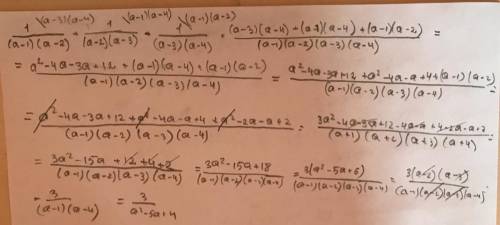 1 \(a-3)(a-4) / (a-1)(a-2) + 1 \(a-1)(a-4) / (a-2)(a-3) + 1 \(a-1)(a-2) / (a-3)(a-4) = (a-3)(a-4) + (a-1)(a-4) + (a-1)(a-2) / (a-1)(a-2)(a-3)(a-4) =
= a²-4a-3a+12 + (a-1)(a-4) + (a-1)(a-2) / (a-1)(a-2)(a-3)(a-4) = a²-4a-3a+12 + a²-4a-a+4 + (a-1)(a-2) / (a-1)(a-2)(a-3)(a-4) =
= a²-4a-3a+12 + a²-4a-a+4 + a²-2a-a+2 / (a-1)(a-2)(a-3)(a-4) = 3a²-4a-3a+12-4a-a+4-2a-a+2 / (a+1)(a+2)(a+3)(a+4) =
= 3a²-15a+12+4+2 / (a-1)(a-2)(a-3)(a-4) = 3a²-15a+18 / (a-1)(a-2)(a-3)(a-4) = 3(a²-5a+6) / (a-1)(a-2)(a-3)(a-4) = 3(a-2)(a-3) / (a-1)(a-2)(a-3)(a-4) =
= 3 / (a-1)(a-4) = 3 / a²-5a+4